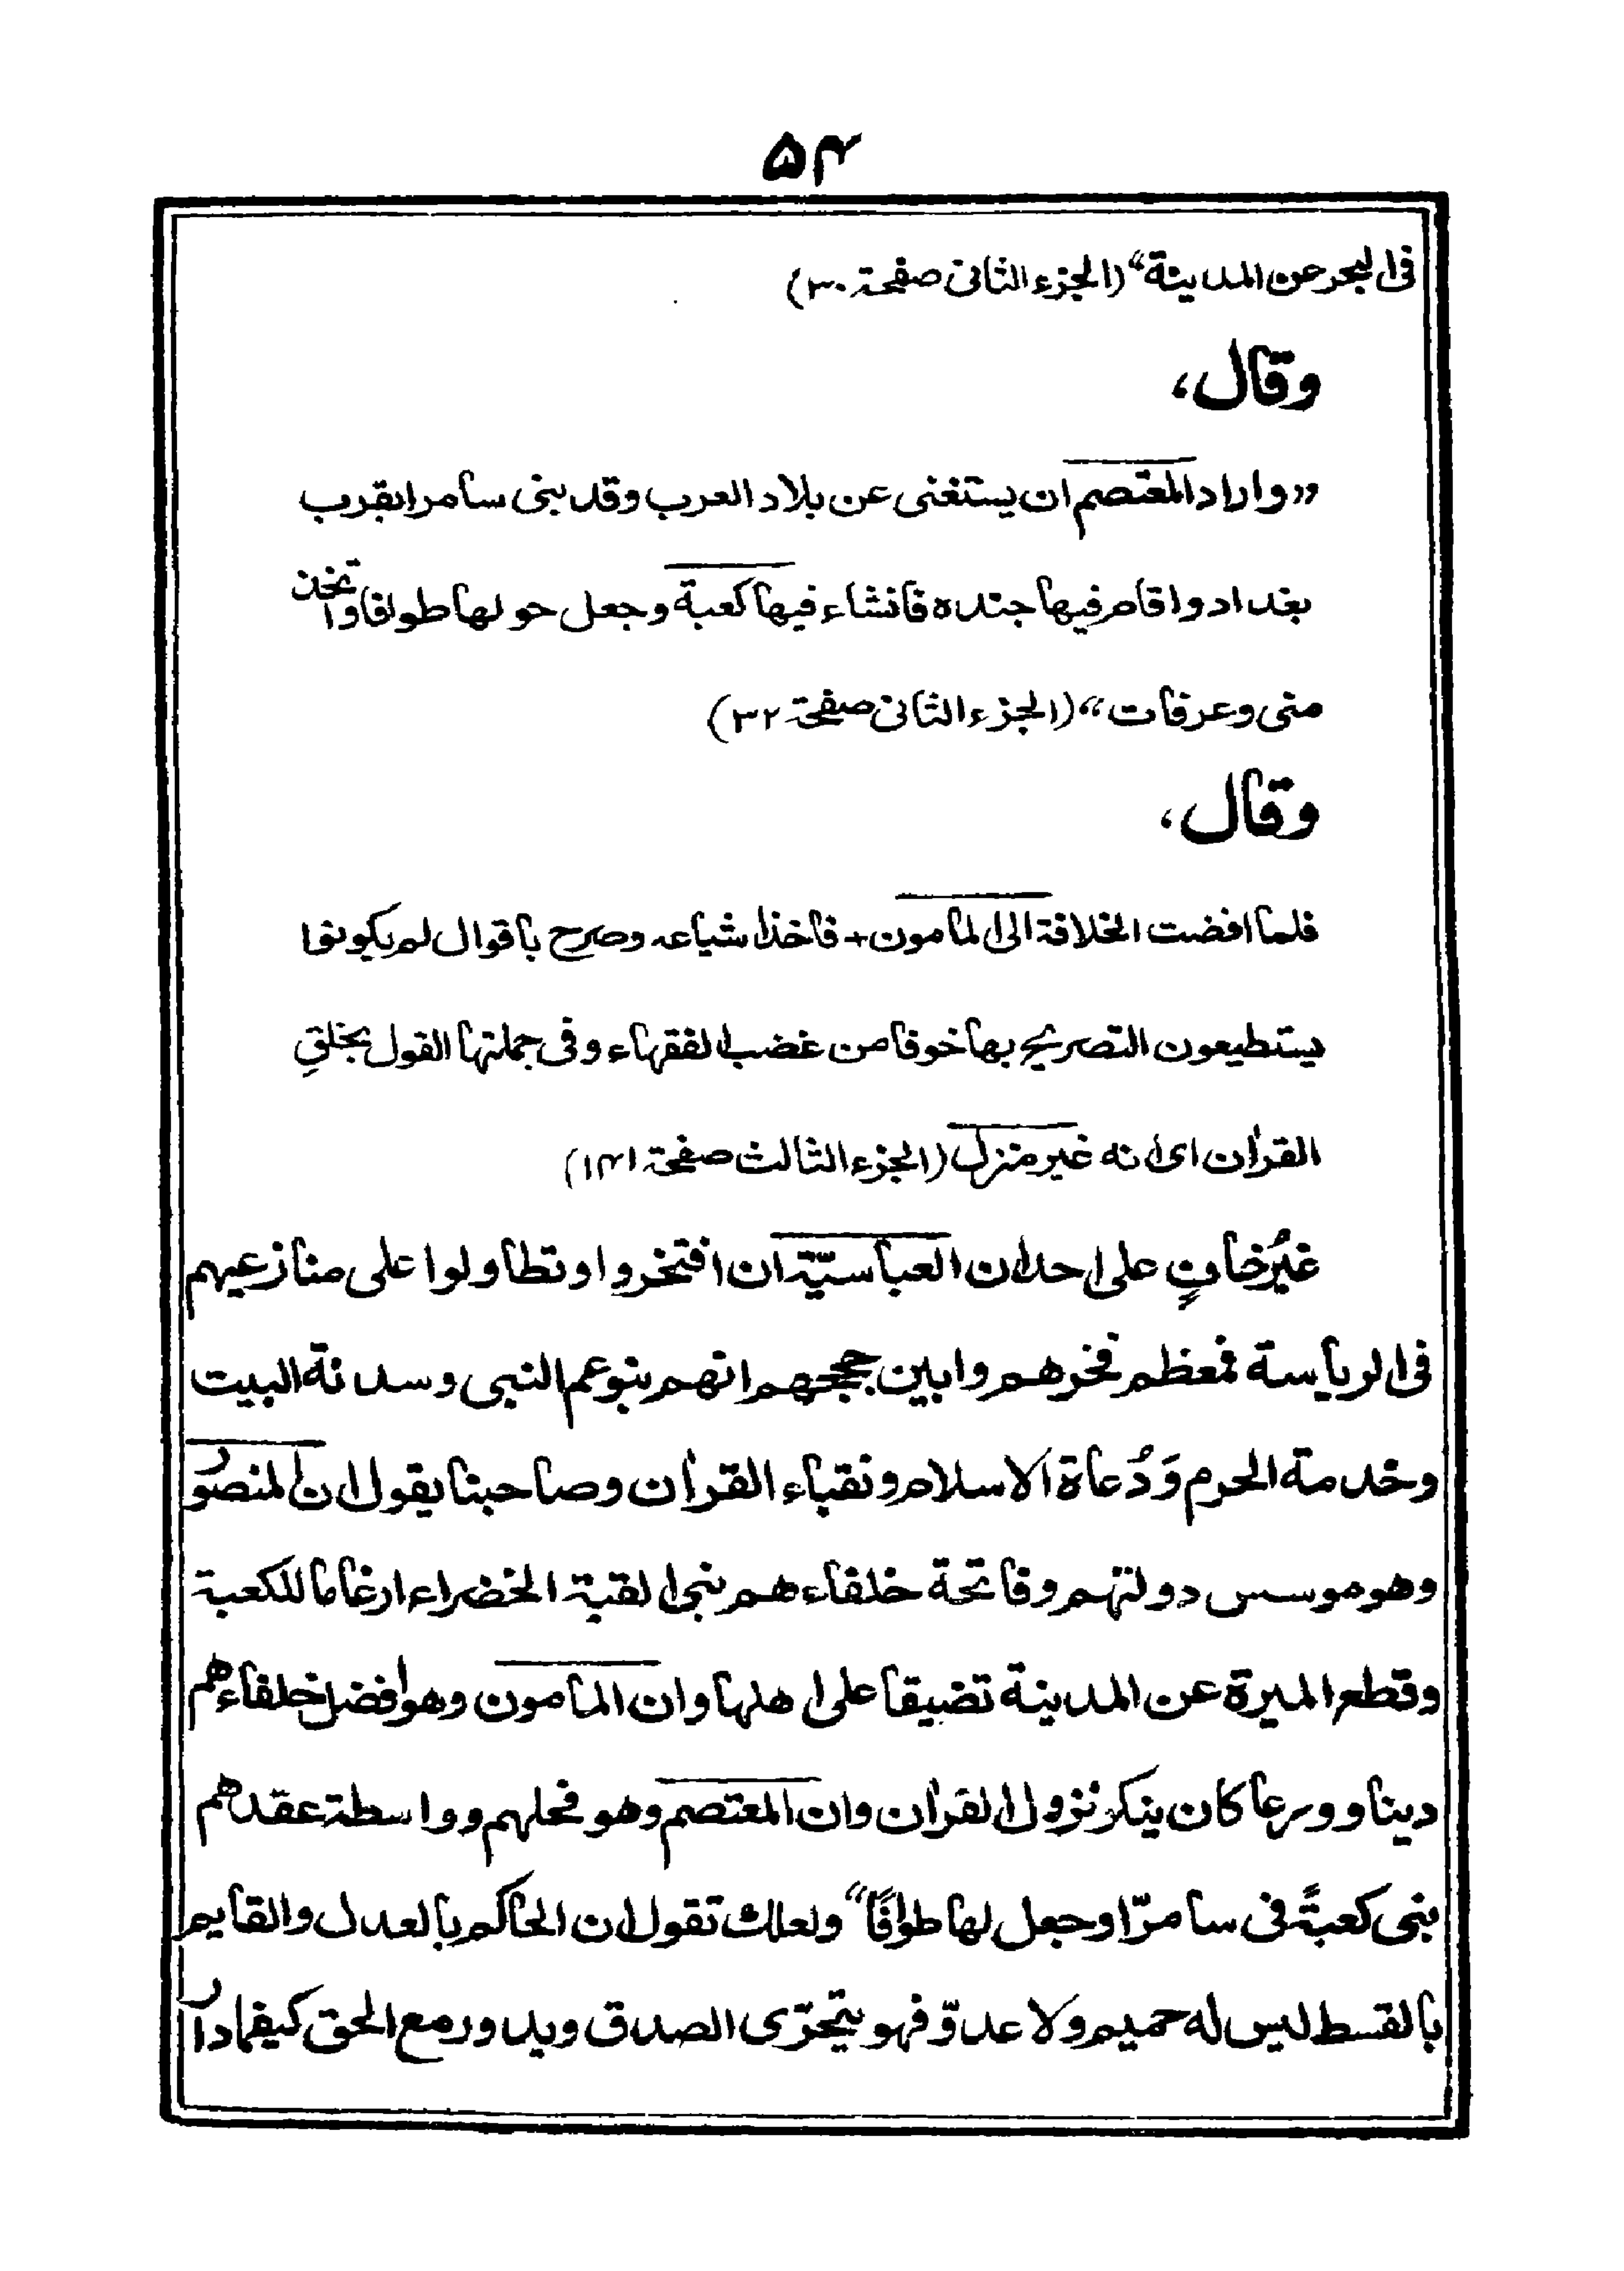 ۵۴
فی البحر عن المدینة“ (الجزء الثانی صفحة ۳۰)
وقال،
”واراد المعتصم ان یستغنی عن بلاد العرب وقد بنی سامرا بقرب
بغداد واقام فیها جنده فانشاء فیها کعبة وجعل حولها طوافا واتخذ
منی وعرفات“ (الجزء الثانی صفحة ۳۲)
وقال،
فلما افضت الخلافة الی المامون + فاخذ اشیاعه وصرح باقوال لم یکونوا
یستطیعون التصریح بها خوفا من غضب الفقهاء وفی جملتها القول بخلقِ
القرآن ای انه غیر منزل (الجزء الثالث صفحة ۱۴۱)
غیرُ خافٍ علی احد ان العباسیّة ان افتخروا وتطاولوا علی منازعیهم
فی الریاسة فمعظم فخرهم وابین حججهم انهم بنو عم النبی وسدانة البیت
وخدمة الحرم وَدُعاة الاسلام ونقباء القرآن وصاحبنا یقول ان المنصور
وهو موسس دولتهم وفاتحة خلفاءهم بنی القبة الخضراء ارغاما للکعبة
وقطع المیرة عن المدینة تضیقا علی اهلها وان المامون وهو افضل خلفاءهم
دینا وورعا کان ینکر نزول القرآن وان المعتصم وهو فحلهم وواسطة عقدهم
بنی کعبةً فی سامرّا وجعل لها طوافًا“ ولعلك تقول ان الحاکم بالعدل والقایم
بالقسط لیس له حمیم ولا عدوّ فهو یتحرّی الصدق ویدور مع الحق کیفما دار